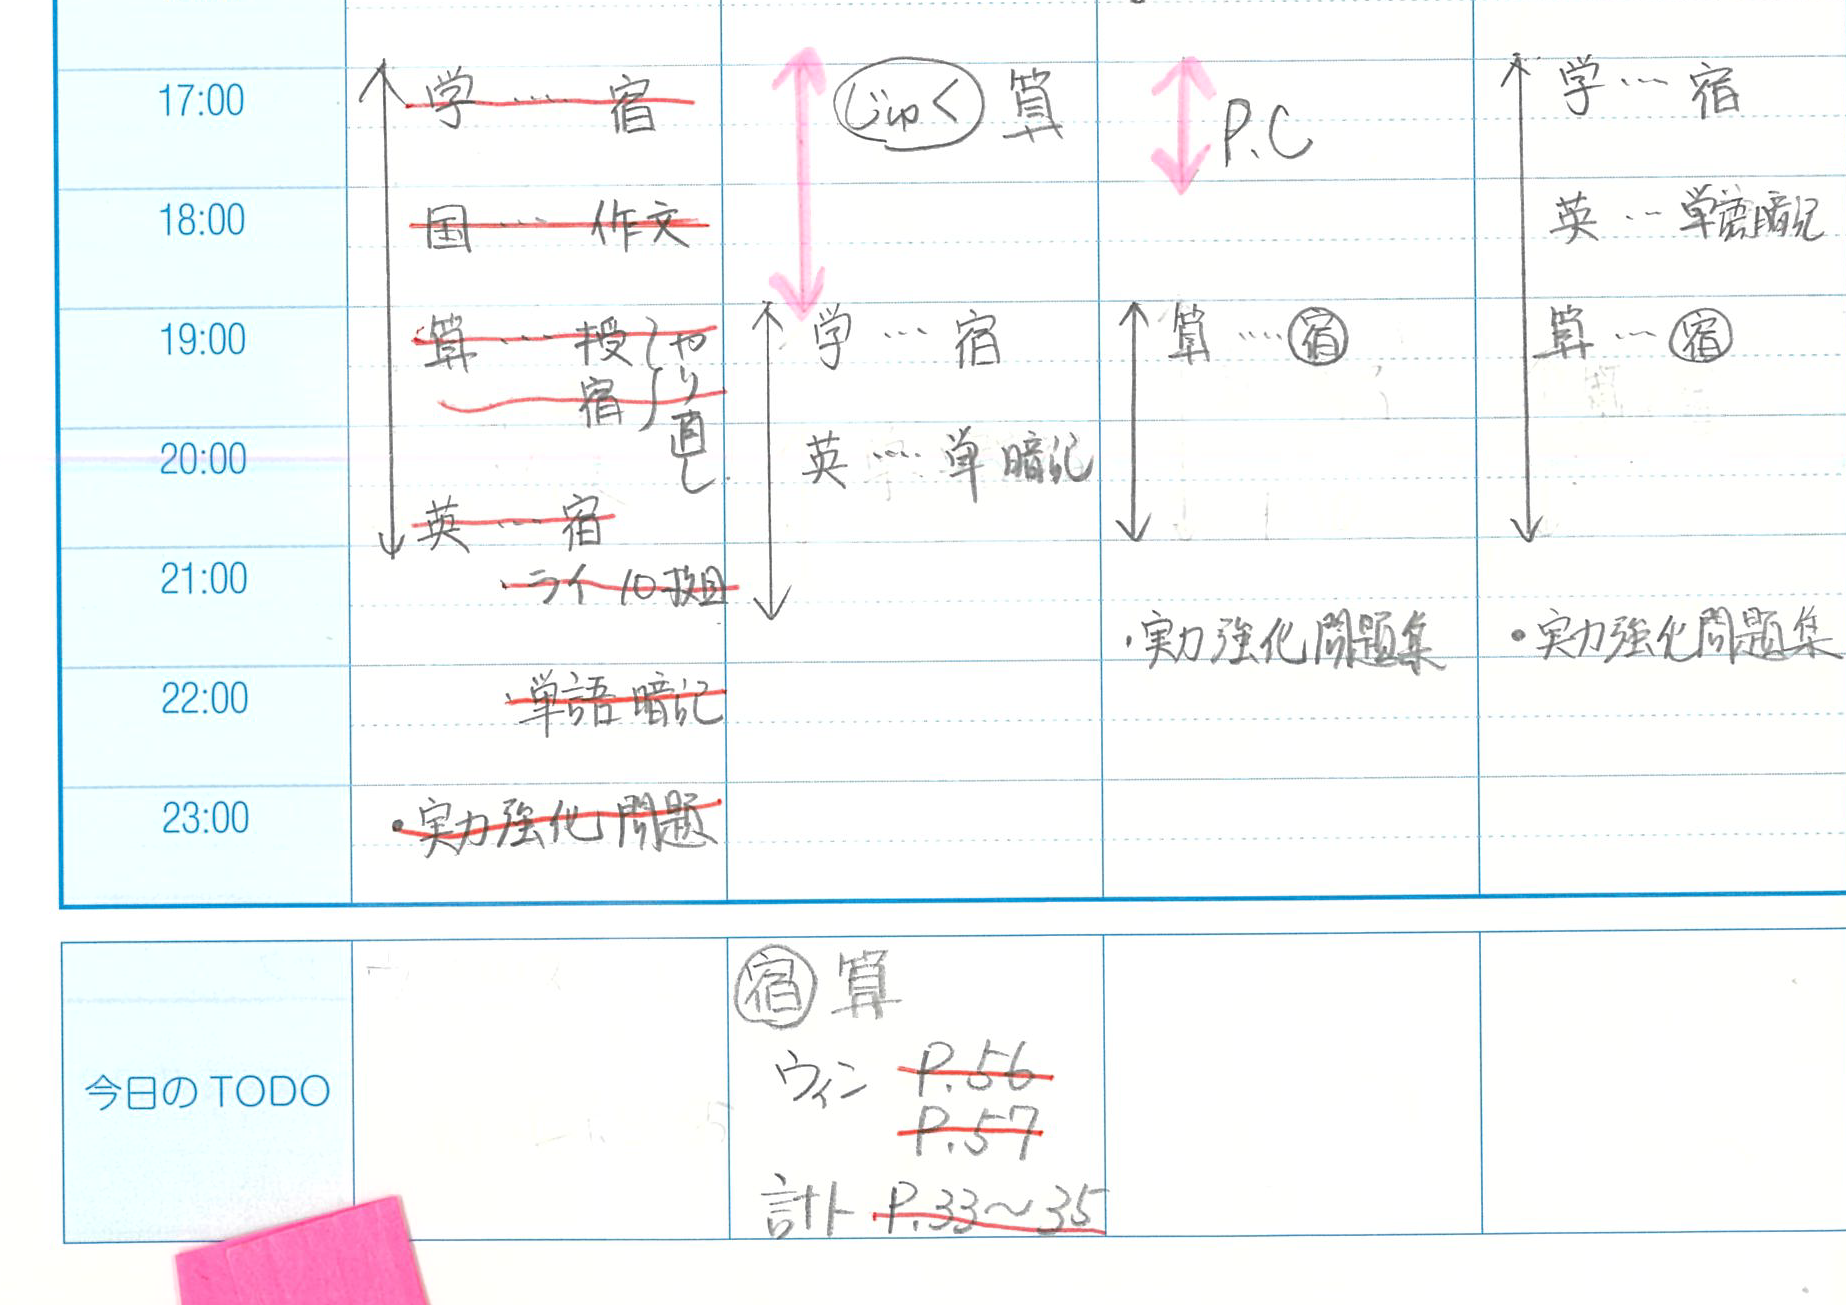 17:00
18:00
19:00
20:00
21:00
22:00
23:00
学……宿
国……作文
算……授
宿
やり直し
英……宿
・ライ 10枚目
・単語暗記
・実力強化問題
じゅく 算
学……宿
英……単 暗記
P.C
算……宿
・実力強化問題集
学……宿
英……単語暗記
算……宿
・実力強化問題集
今日のTODO
宿 算
ウィン P.56
P.57
計ト P.33〜35